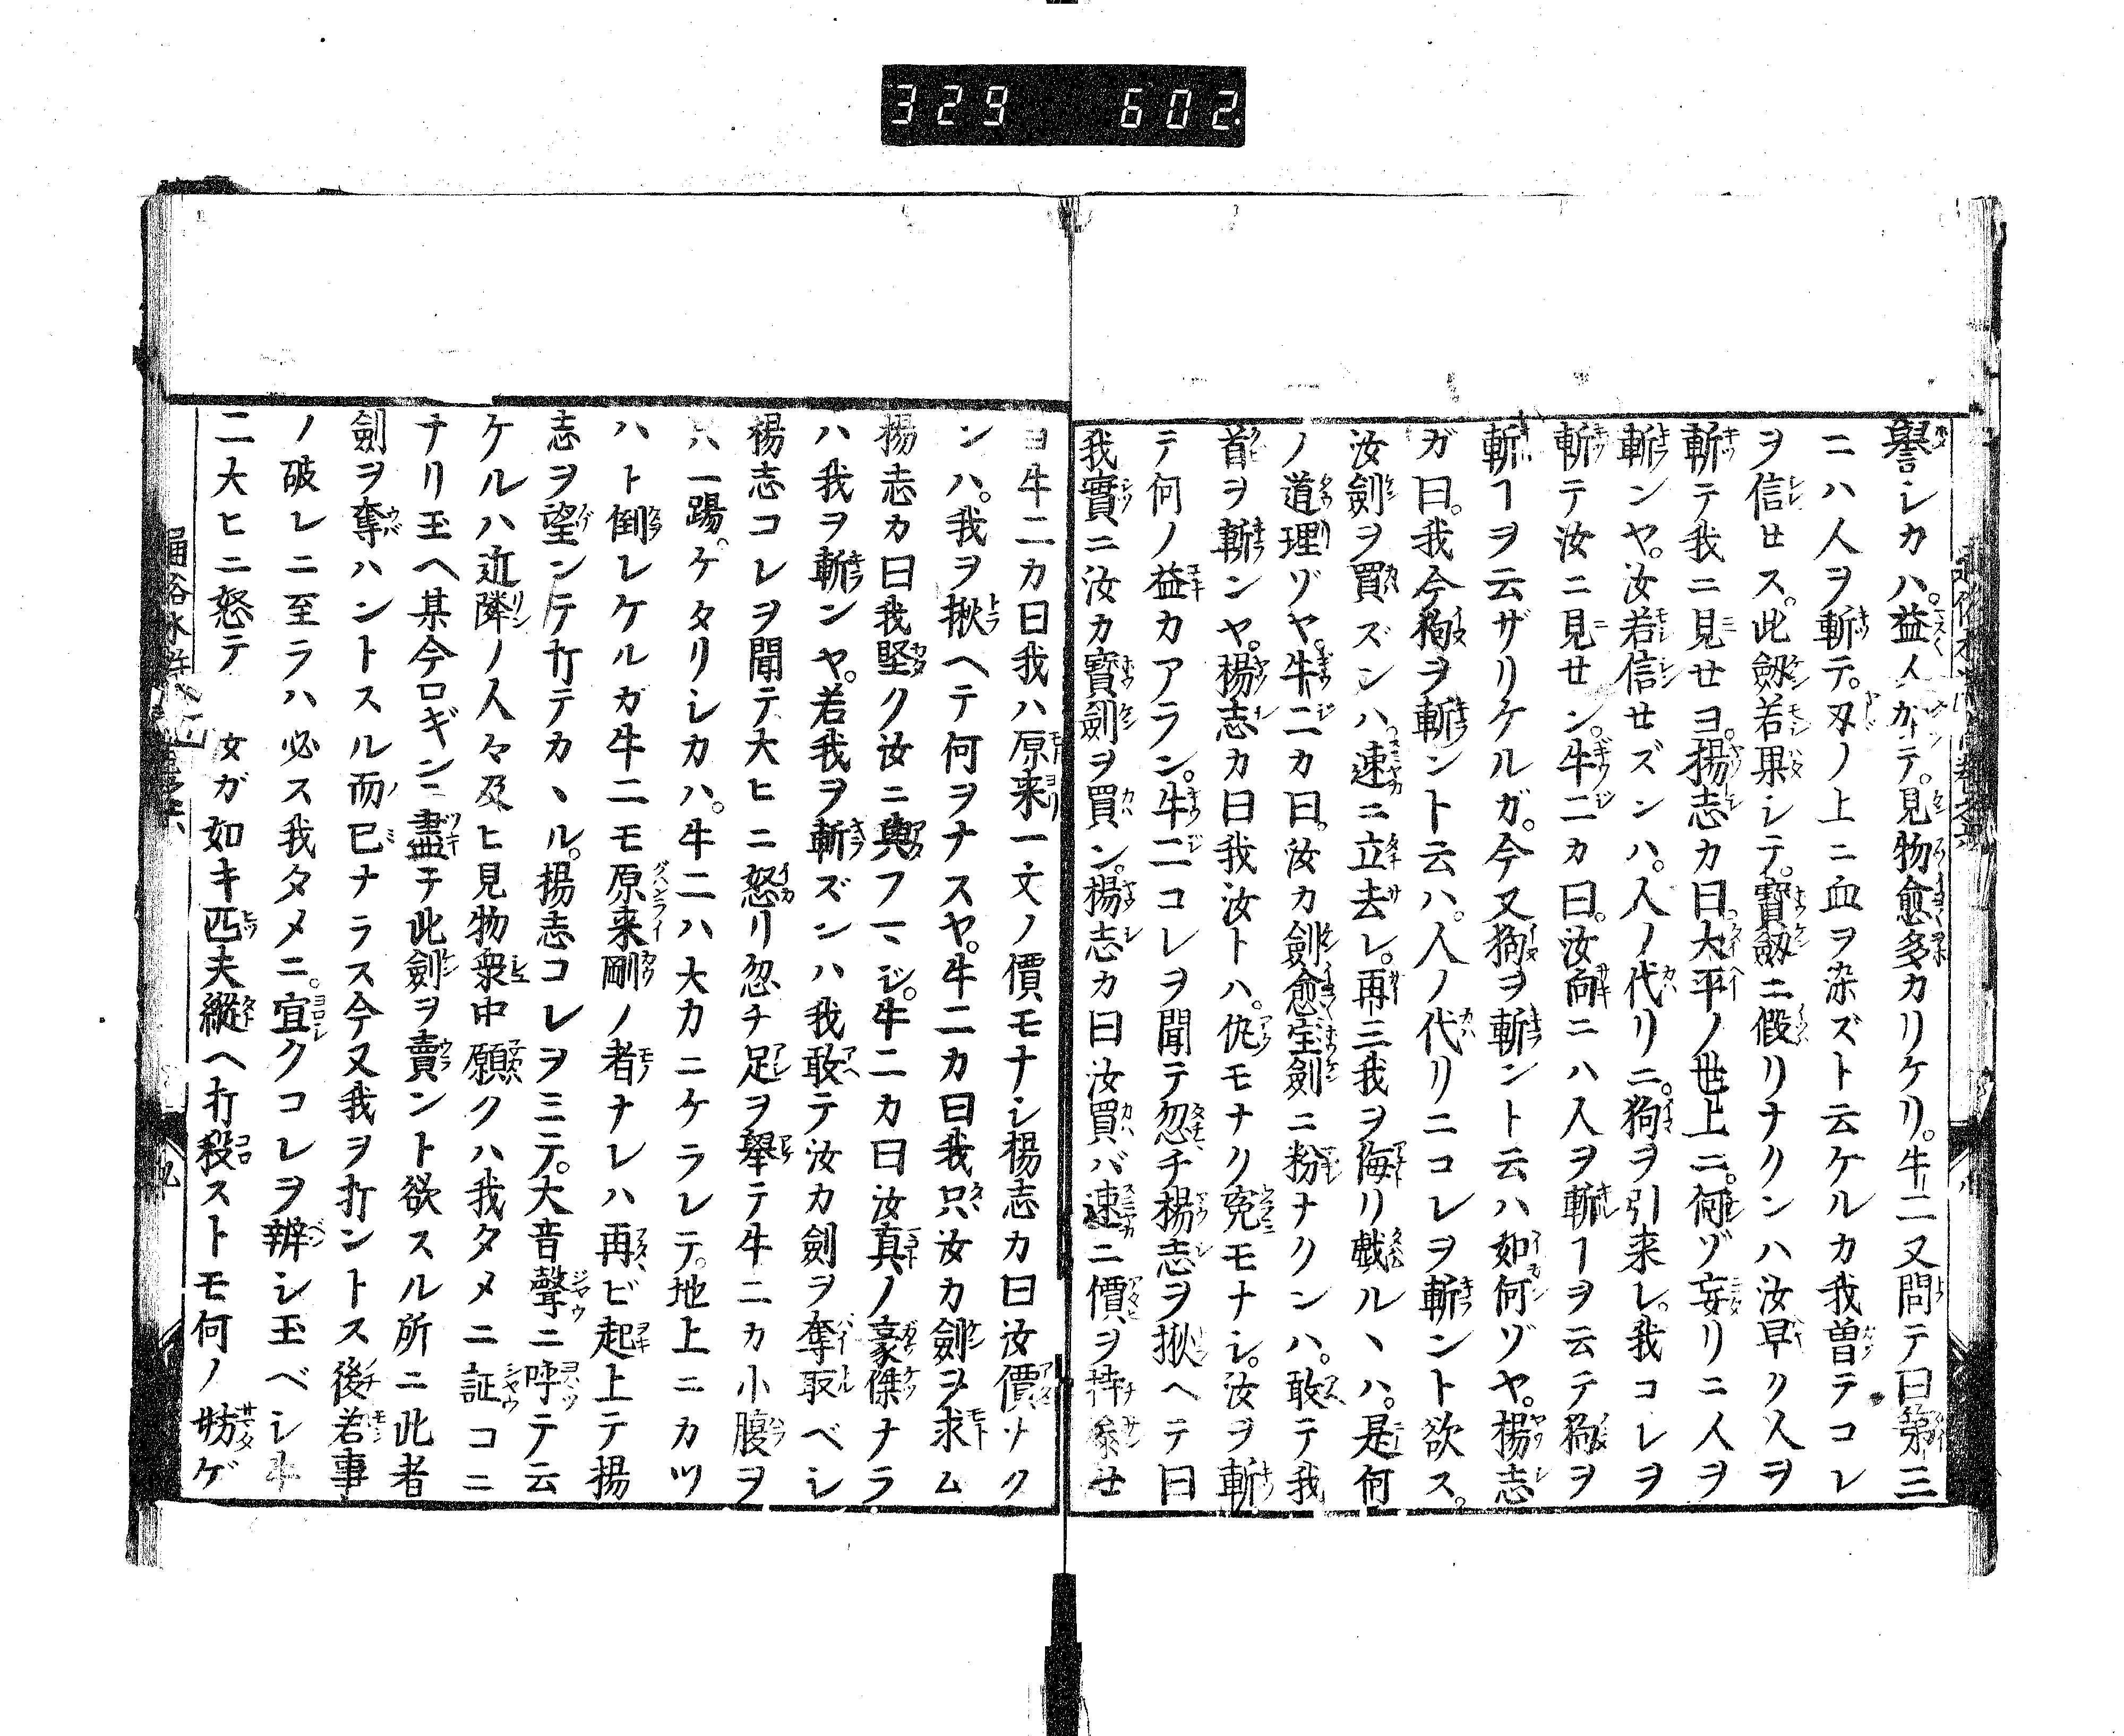 329 602
譽シカハ。益人カ テ。見物愈多カリケリ。牛二又問テ曰第三
ニハ人ヲ斬テ。刄ノ上ニ血ヲ染ズト云ケルカ我曽テコレ
ヲ信セス。此劔若果シテ。寶劔ニ假リナクンハ汝早ク人ヲ
斬テ我ニ見セヨ。揚志カ曰。大平ノ世上ニ。何ゾ妄リニ人ヲ
斬ンヤ。汝若信セズンハ。人ノ代リニ。狗ヲ引来レ。我コレヲ
斬テ汝ニ見セン。牛二カ曰。汝向ニハ人ヲ斬ヿヲ云テ狗ヲ
斬ヿヲ云ザリケルガ。今又狗ヲ斬ント云ハ如何ゾヤ。楊志
ガ曰。我今狗ヲ斬ント云ハ。人ノ代リニコレヲ斬ント欲ス。
汝劍ヲ買ズンハ。速ニ立去レ。再三我ヲ侮リ戯ルヽハ。是何
ノ道理ゾヤ。牛二カ曰。汝カ劍愈宝劍ニ粉ナクンハ。敢テ我
首ヲ斬ンヤ。楊志カ曰我汝トハ。仇モナク寃モナシ。汝ヲ斬
テ何ノ益カアラン。牛二コレヲ聞テ忽チ楊志ヲ揪ヘテ曰
我實ニ汝カ寶劍ヲ買ン。楊志カ曰汝買バ速ニ價ヲ持參セ
ヨ牛二カ曰我ハ原来一文ノ價モナシ楊志カ曰汝價ナク
ンハ。我ヲ揪ヘテ何ヲナスヤ。牛二カ曰我只汝カ劍ヲ求ム
揚志カ曰我堅ク汝ニ與フマジ。牛二カ曰汝真ノ豪傑ナラ
ハ我ヲ斬ンヤ。若我ヲ斬ズンハ我敢テ汝カ劍ヲ奪取ベシ
楊志コレヲ聞テ大ヒニ怒リ忽チ足ヲ舉テ牛二カ小腹ヲ
ハ一踢。ケタリシカハ。牛二ハ大力ニケラレテ。地上ニカツ
ハト倒レケルガ牛二モ原来剛ノ者ナレハ再ビ起上テ揚
志ヲ望ンテ打テカヽル。揚志コレヲミテ。大音聲ニ呼テ云
ケルハ近隣ノ人々及ヒ見物衆中願クハ我タメニ証コニ
ナリ玉ヘ某今ロギンニ盡テ此劍ヲ賣ント欲スル所ニ此者
劍ヲ奪ハントスル而已ナラス今又我ヲ打ントス後若事
ノ破レニ至ラハ必ス我タメニ。宜クコレヲ辨シ玉ベシ牛
二大ヒニ怒テ 女ガ如キ匹夫縱ヘ打殺ストモ何ノ妨ゲ